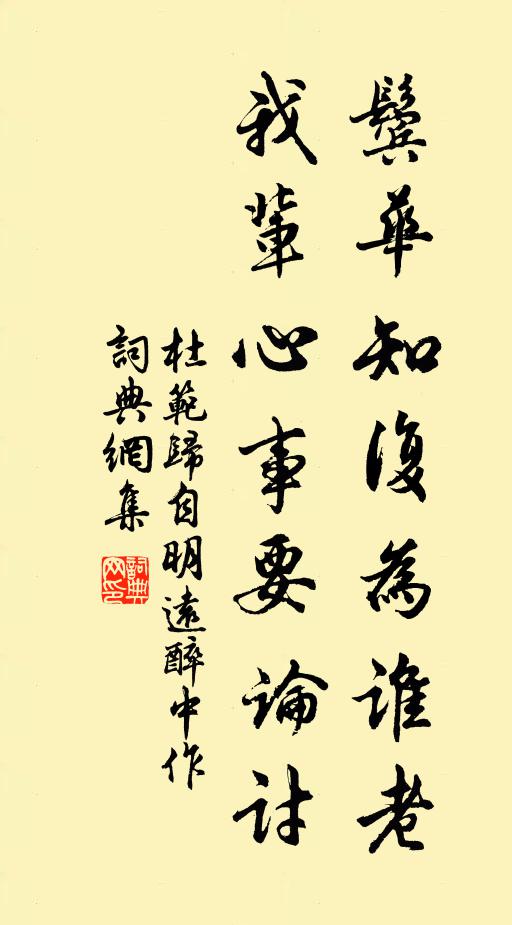 鬢華知復為誰老
我輩心事要論討
杜範歸自明遠醉中作
詞典網集
詞典網印